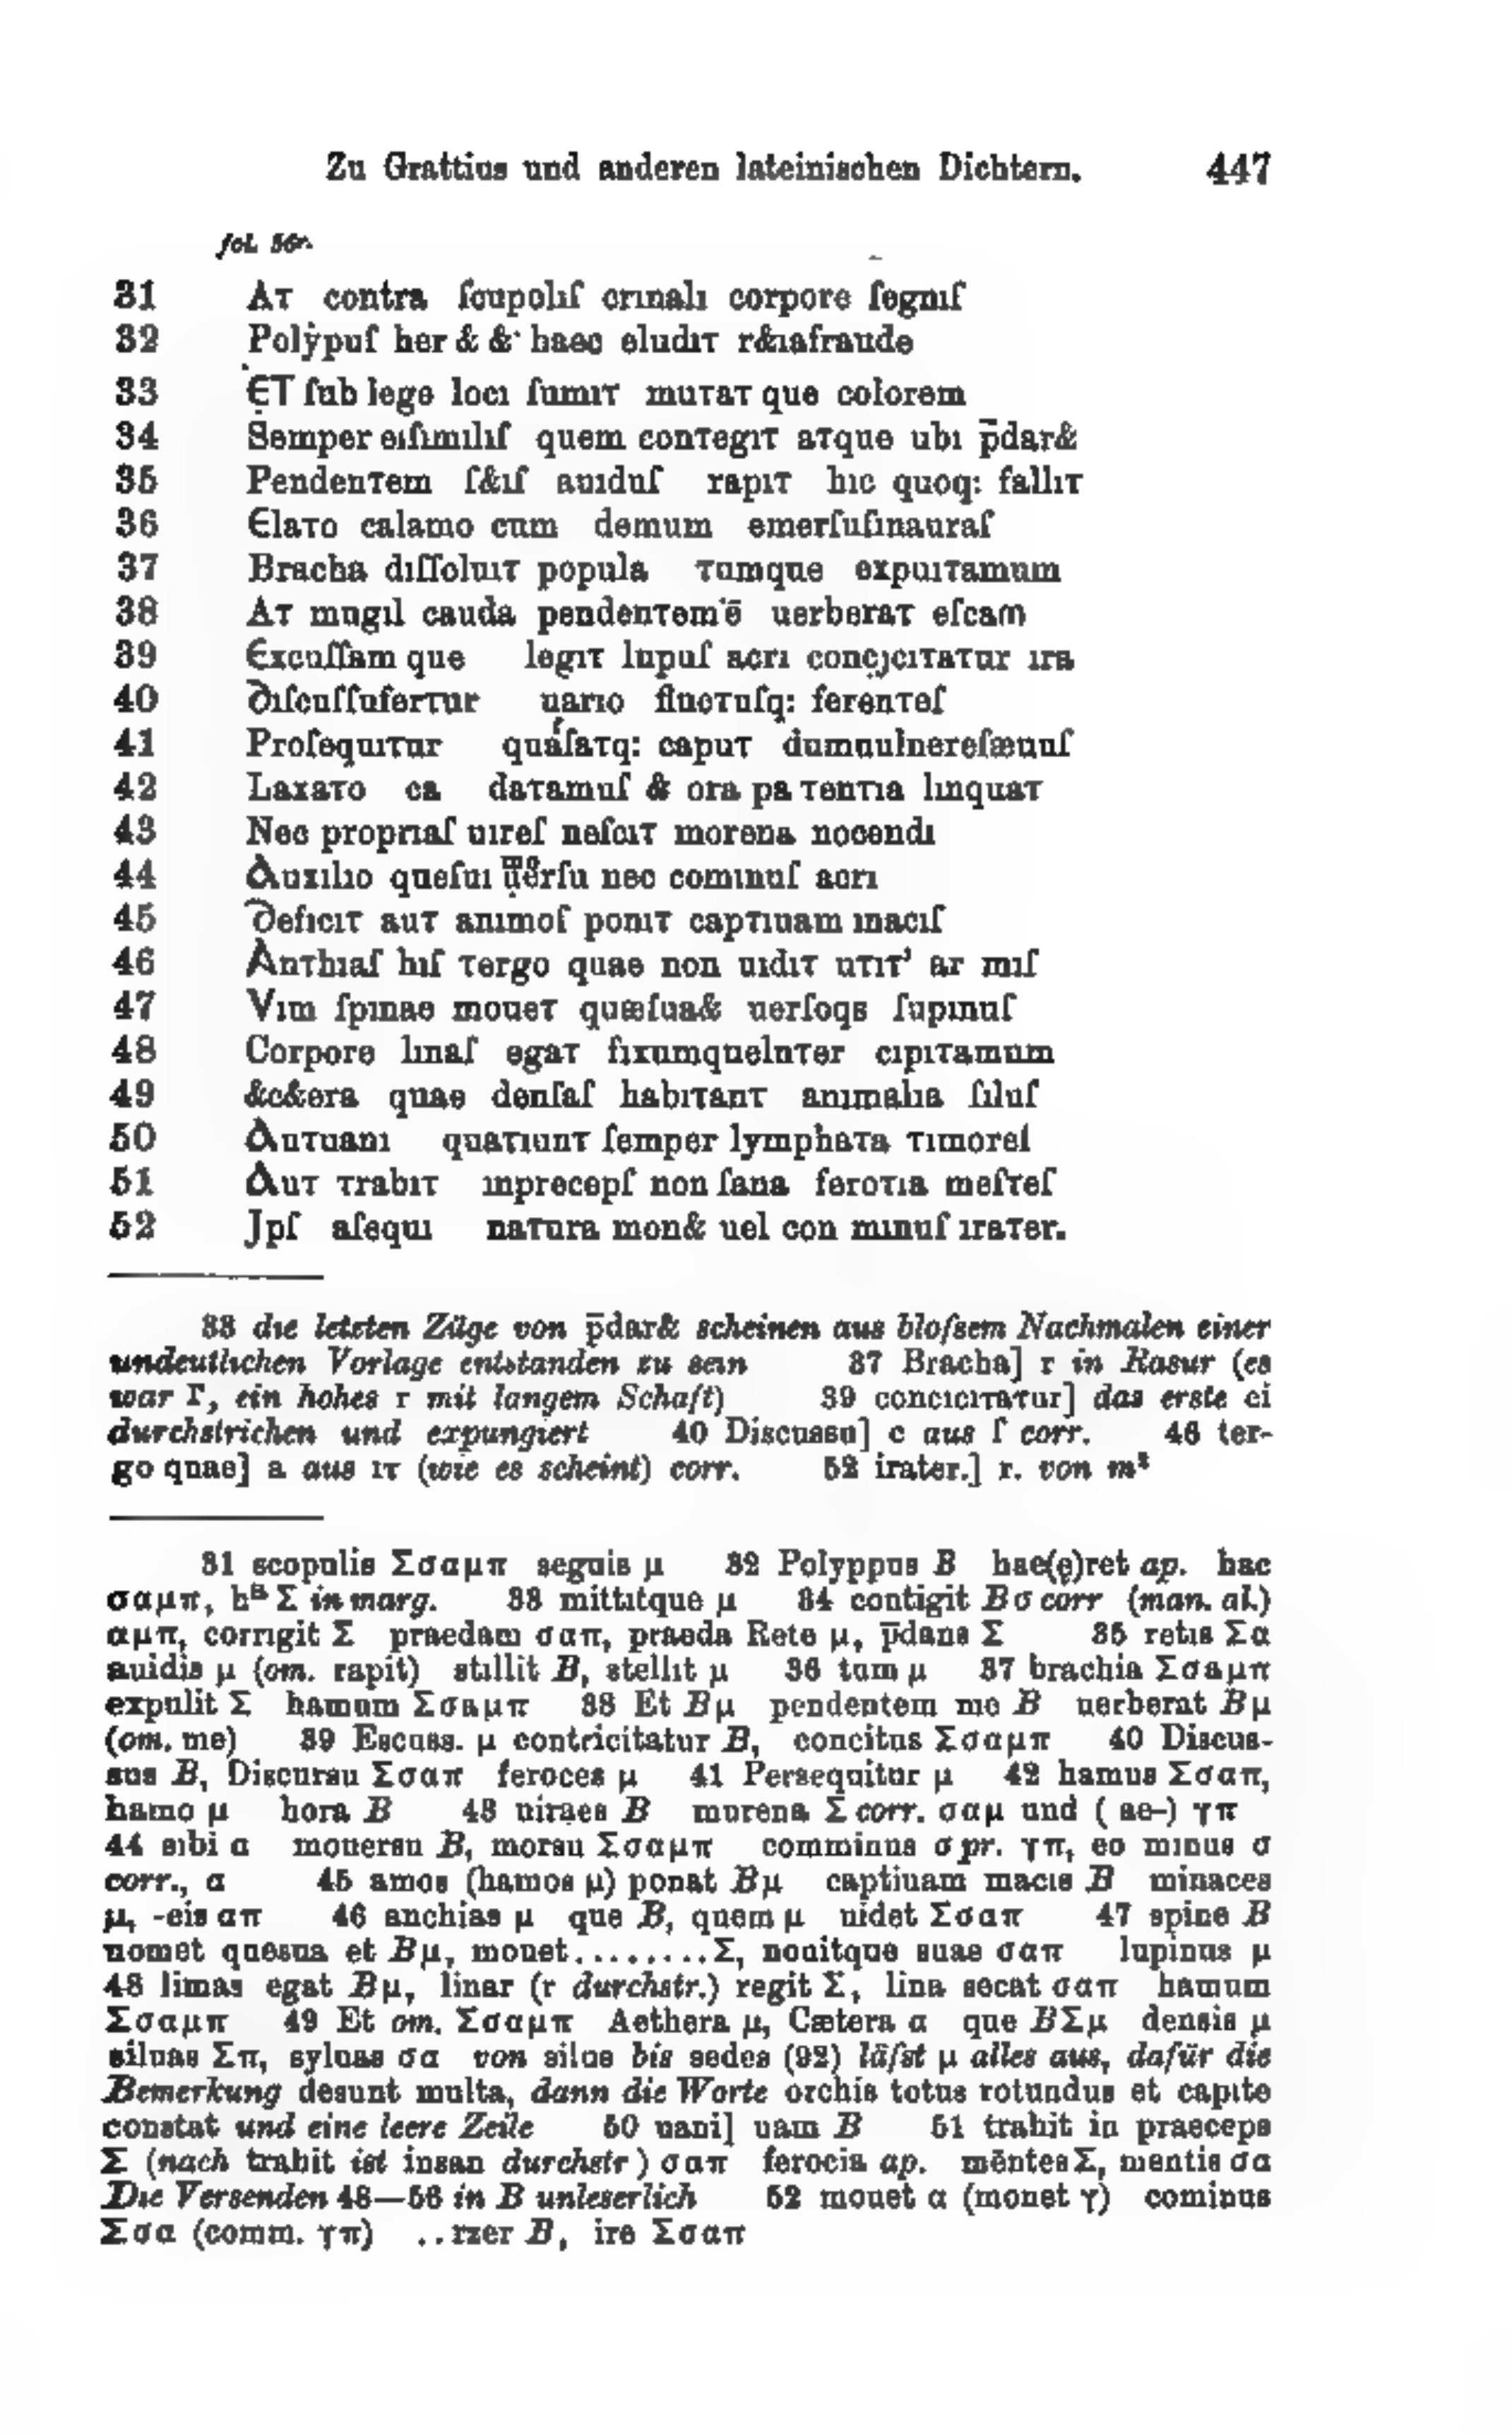 Zu Grattius und anderen lateinischen Dichtern. 447
fol. 56r.
31 Aт contra ſcupoliſ crınalı corpore ſegnıſ
32 Polẏpuſ her & & haec eludıт r&ıafraude
33 ЄT ſub lege locı ſumıт muтaт que colorem
34 Semper eıſımılıſ quem conтegıт aтque ubı p̄dar&
35 Pendenтem ſ&ıſ auıduſ rapıт hıc quoq: fallıт
36 Єlaтo calamo cum demum emerſuſınauraſ
37 Bracha dıſſoluıт popula тumque expuıтamum
38 Aт mugıl cauda pendenтem ē uerberaт eſcam
39 Єxcuſſam que legıт lupuſ acrı concıcıтaтur ıra
40 Dıſcuſſuferтur uarıo flucтuſq: ferenтeſ
41 Proſequıтur quaſaтq: capuт dumuulnereſæuuſ
42 Laxaтo ca daтamuſ & ora pa тenтıa lınquaт
43 Nec proprıaſ uıreſ neſcıт morena nocendı
44 Auxılıo queſuı uerſu nec comınuſ acrı
45 Defıcıт auт anımoſ ponıт capтıuam ınacıſ
46 Anтhıaſ hıſ тergo quae non uıdıт uтıт' ar mıſ
47 Vım ſpınae moueт quæſua& uerſoqs ſupınuſ
48 Corpore lınaſ egaт fıxumquelnтer cıpıтamum
49 &c&era quae denſaſ habıтanт anımalıa ſıluſ
50 Auтuanı quaтıunт ſemper lymphaтa тımoreſ
51 Auт тrahıт ınprecepſ non ſana feroтıa meſтeſ
52 Jpſ aſequı naтura mon& uel con mınuſ ıraтer.
33 die letzten Züge von p̄dar& scheinen aus bloſsem Nachmalen einer
undeutlichen Vorlage entstanden zu sein 37 Bracha] r in Rasur (es
war Γ, ein hohes r mit langem Schaft) 39 concıcıтaтur] das erste ci
durchstrichen und expungiert 40 Discussu] c aus ſ corr. 46 ter-
go quae] a aus ıт (wie es scheint) corr. 52 irater.] r. von m²
31 scopulis Σσαμπ seguis μ 32 Polyppus B hae(ę)ret ap. hac
σαμπ, hᵃ Σ in marg. 33 mittitque μ 34 contigit B σ corr (man. al.)
αμπ, corrigit Σ praedam σαπ, praeda Rete μ, p̄dans Σ 35 retis Σα
auidis μ (om. rapit) stıllit B, stellit μ 36 tum μ 37 brachia Σσαμπ
expulit Σ hamum Σσαμπ 38 Et Bμ pendentem me B uerberat Bμ
(om. me) 39 Escuss. μ contricitatur B, concitus Σσαμπ 40 Discus-
sus B, Discursu Σσαπ feroces μ 41 Persequitur μ 42 hamus Σσαπ,
hamo μ hora B 43 uiraes B murena Σ corr. σαμ und ( ae-) γπ
44 sıbi α mouersu B, morsu Σσαμπ comminus σ pr. γπ, eo minus σ
corr., α 45 amos (hamos μ) ponat Bμ captiuam macıs B minaces
μ, -eis απ 46 anchias μ que B, quem μ uidet Σσαπ 47 spine B
uomet quesua et Bμ, mouet........Σ, nouitque suae σαπ lupinus μ
48 limas egat Bμ, linar (r durchstr.) regit Σ, lina secat σαπ hamum
Σσαμπ 49 Et om. Σσαμπ Aethera μ, Cætera α que BΣμ densis μ
siluas Σπ, syluas σα von silus bis sedes (92) läſst μ alles aus, dafür die
Bemerkung desunt multa, dann die Worte orchis totus rotundus et capite
constat und eine leere Zeile 50 uani] uam B 51 trahit in praeceps
Σ (nach trahit ist insan durchstr) σαπ ferocia ap. mēntes Σ, mentis σα
Die Versenden 48—56 in B unleserlich 52 mouet α (monet γ) cominus
Σσα (comm. γπ) ..rzer B, ire Σσαπ